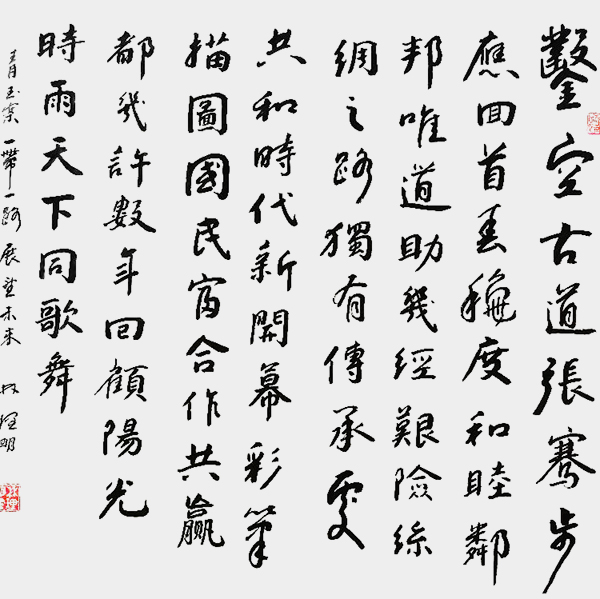 鑿空古道張騫步
應回首春穐度和睦鄰
邦唯道助幾經艱險絲
綢之路獨有傳承處
共和時代新開幕彩筆
描圖國民富合作共贏
都幾許數年回顧陽光
時雨天下同歌舞
青玉案一帶一路展望未来